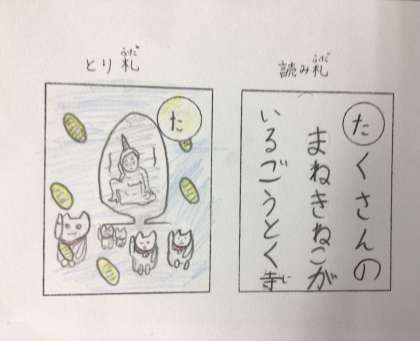 とり札
ふだ
た
読み札
ふだ
たくさんの
まねきねこが
いるごうとく寺
じ